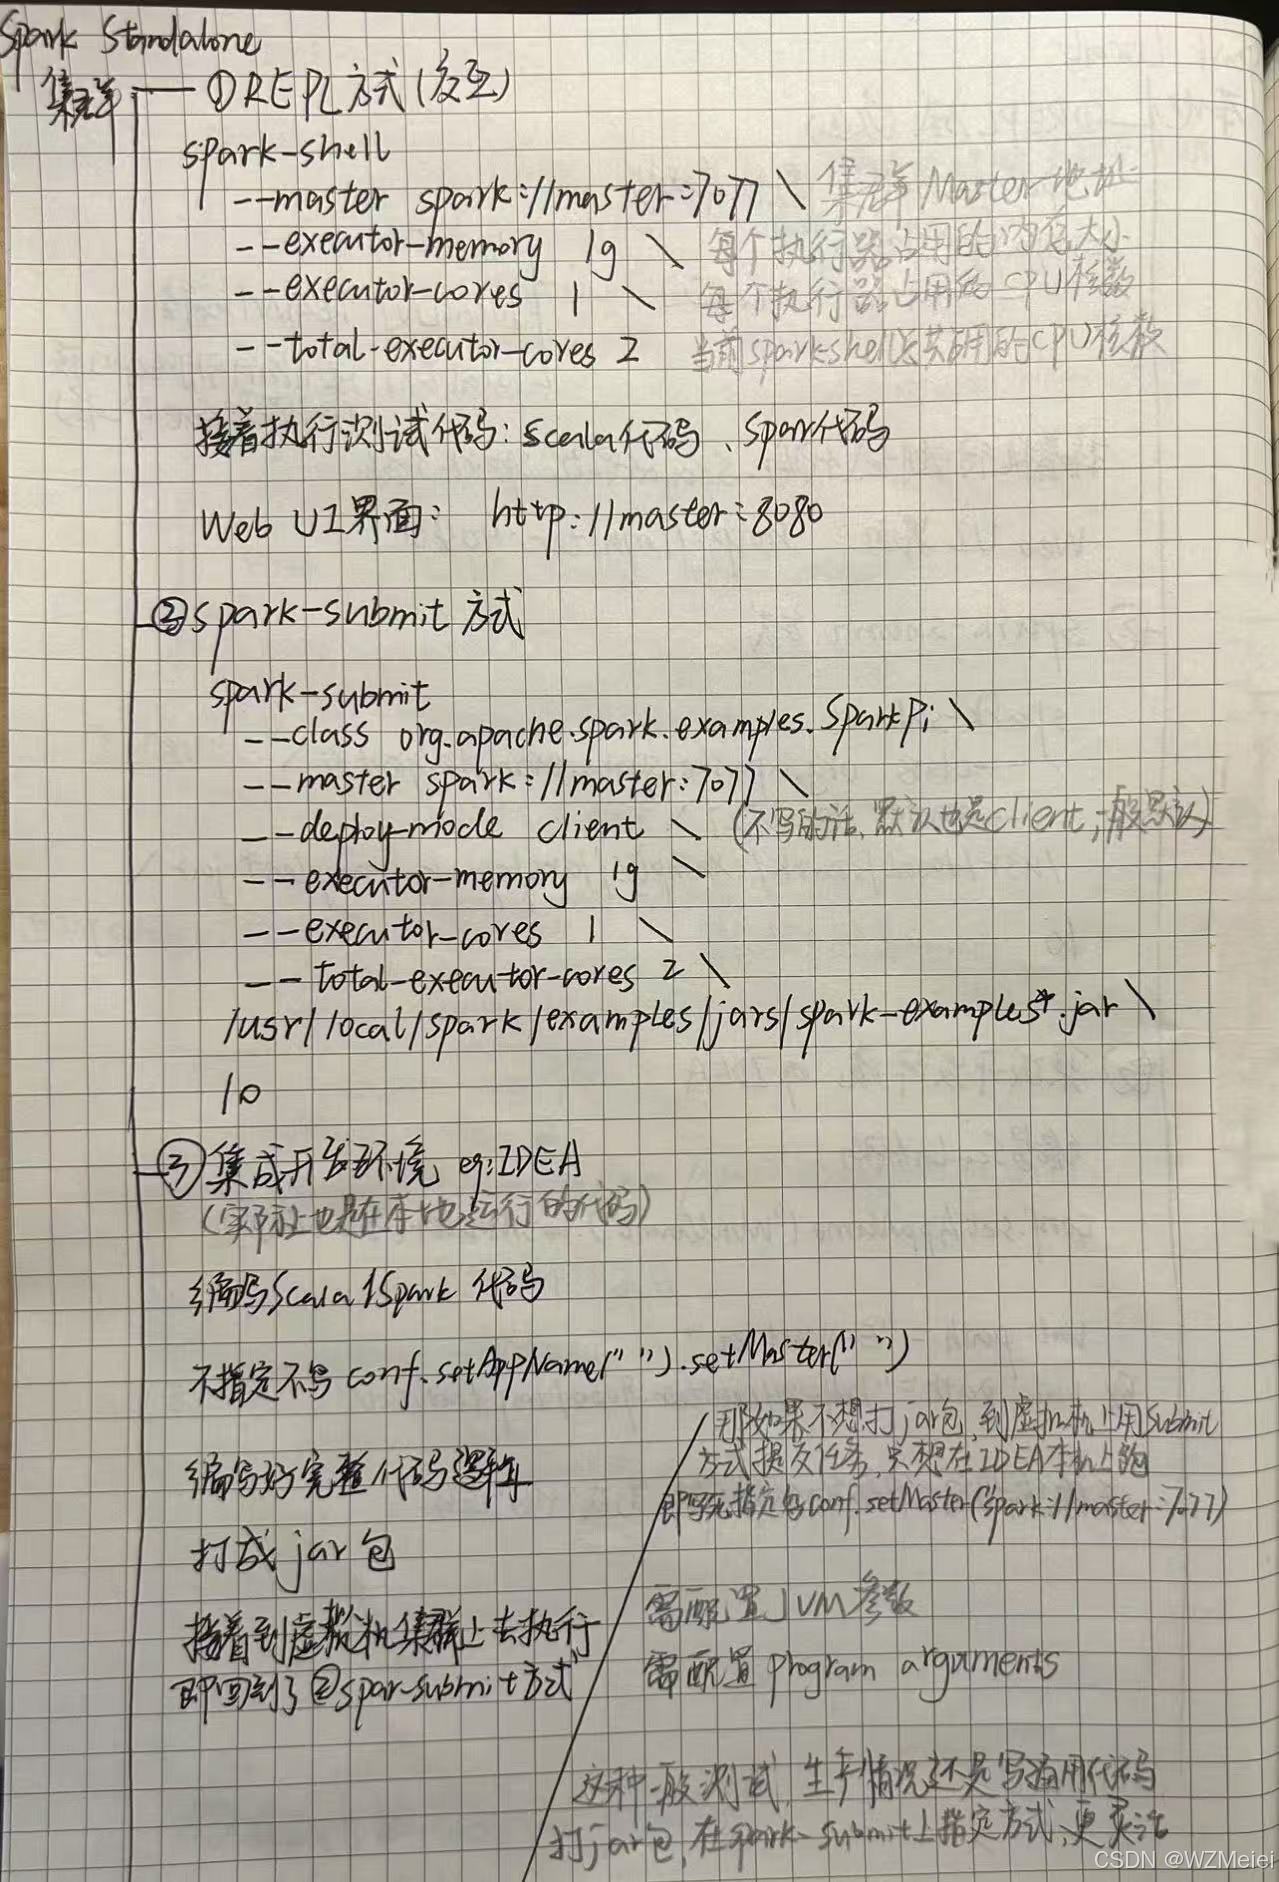 Spark Standalone
集群 ①REPL方式(交互)
spark-shell
--master spark://master:7077 \ 集群Master地址
--executor-memory 1g \ 每个执行器占用的内存大小
--executor-cores 1 \ 每个执行器占用的CPU核数
--total-executor-cores 2 当前spark-shell总共占用的CPU核数
接着执行测试代码: scala代码、spar代码
Web UI界面: http://master:8080
②spark-submit 方式
spark-submit
--class org.apache.spark.examples.SparkPi \
--master spark://master:7077 \
--deploy-mode client \ (不写的话,默认也是client,一般默认)
--executor-memory 1g \
--executor-cores 1 \
--total-executor-cores 2 \
/usr/local/spark/examples/jars/spark-examples*.jar \
10
③集成开发环境 eg:IDEA
(实际上也是在本地运行的代码)
编写Scala/Spark 代码
不指定不写 conf.setAppName(" ").setMaster(" ")
编写好完整代码逻辑
打成jar包
接着到虚拟机集群上去执行
即回到了②spar-submit方式
那如果不想打jar包,到虚拟机上用submit
方式提交任务,只想在IDEA本机上跑
即写死指定好conf.setMaster("spark://master:7077)
需配置JVM参数
需配置program arguments
这种一般测试,生产情况还是写通用代码
打jar包,在spark-submit上指定方式,更灵活
CSDN @WZMeiei